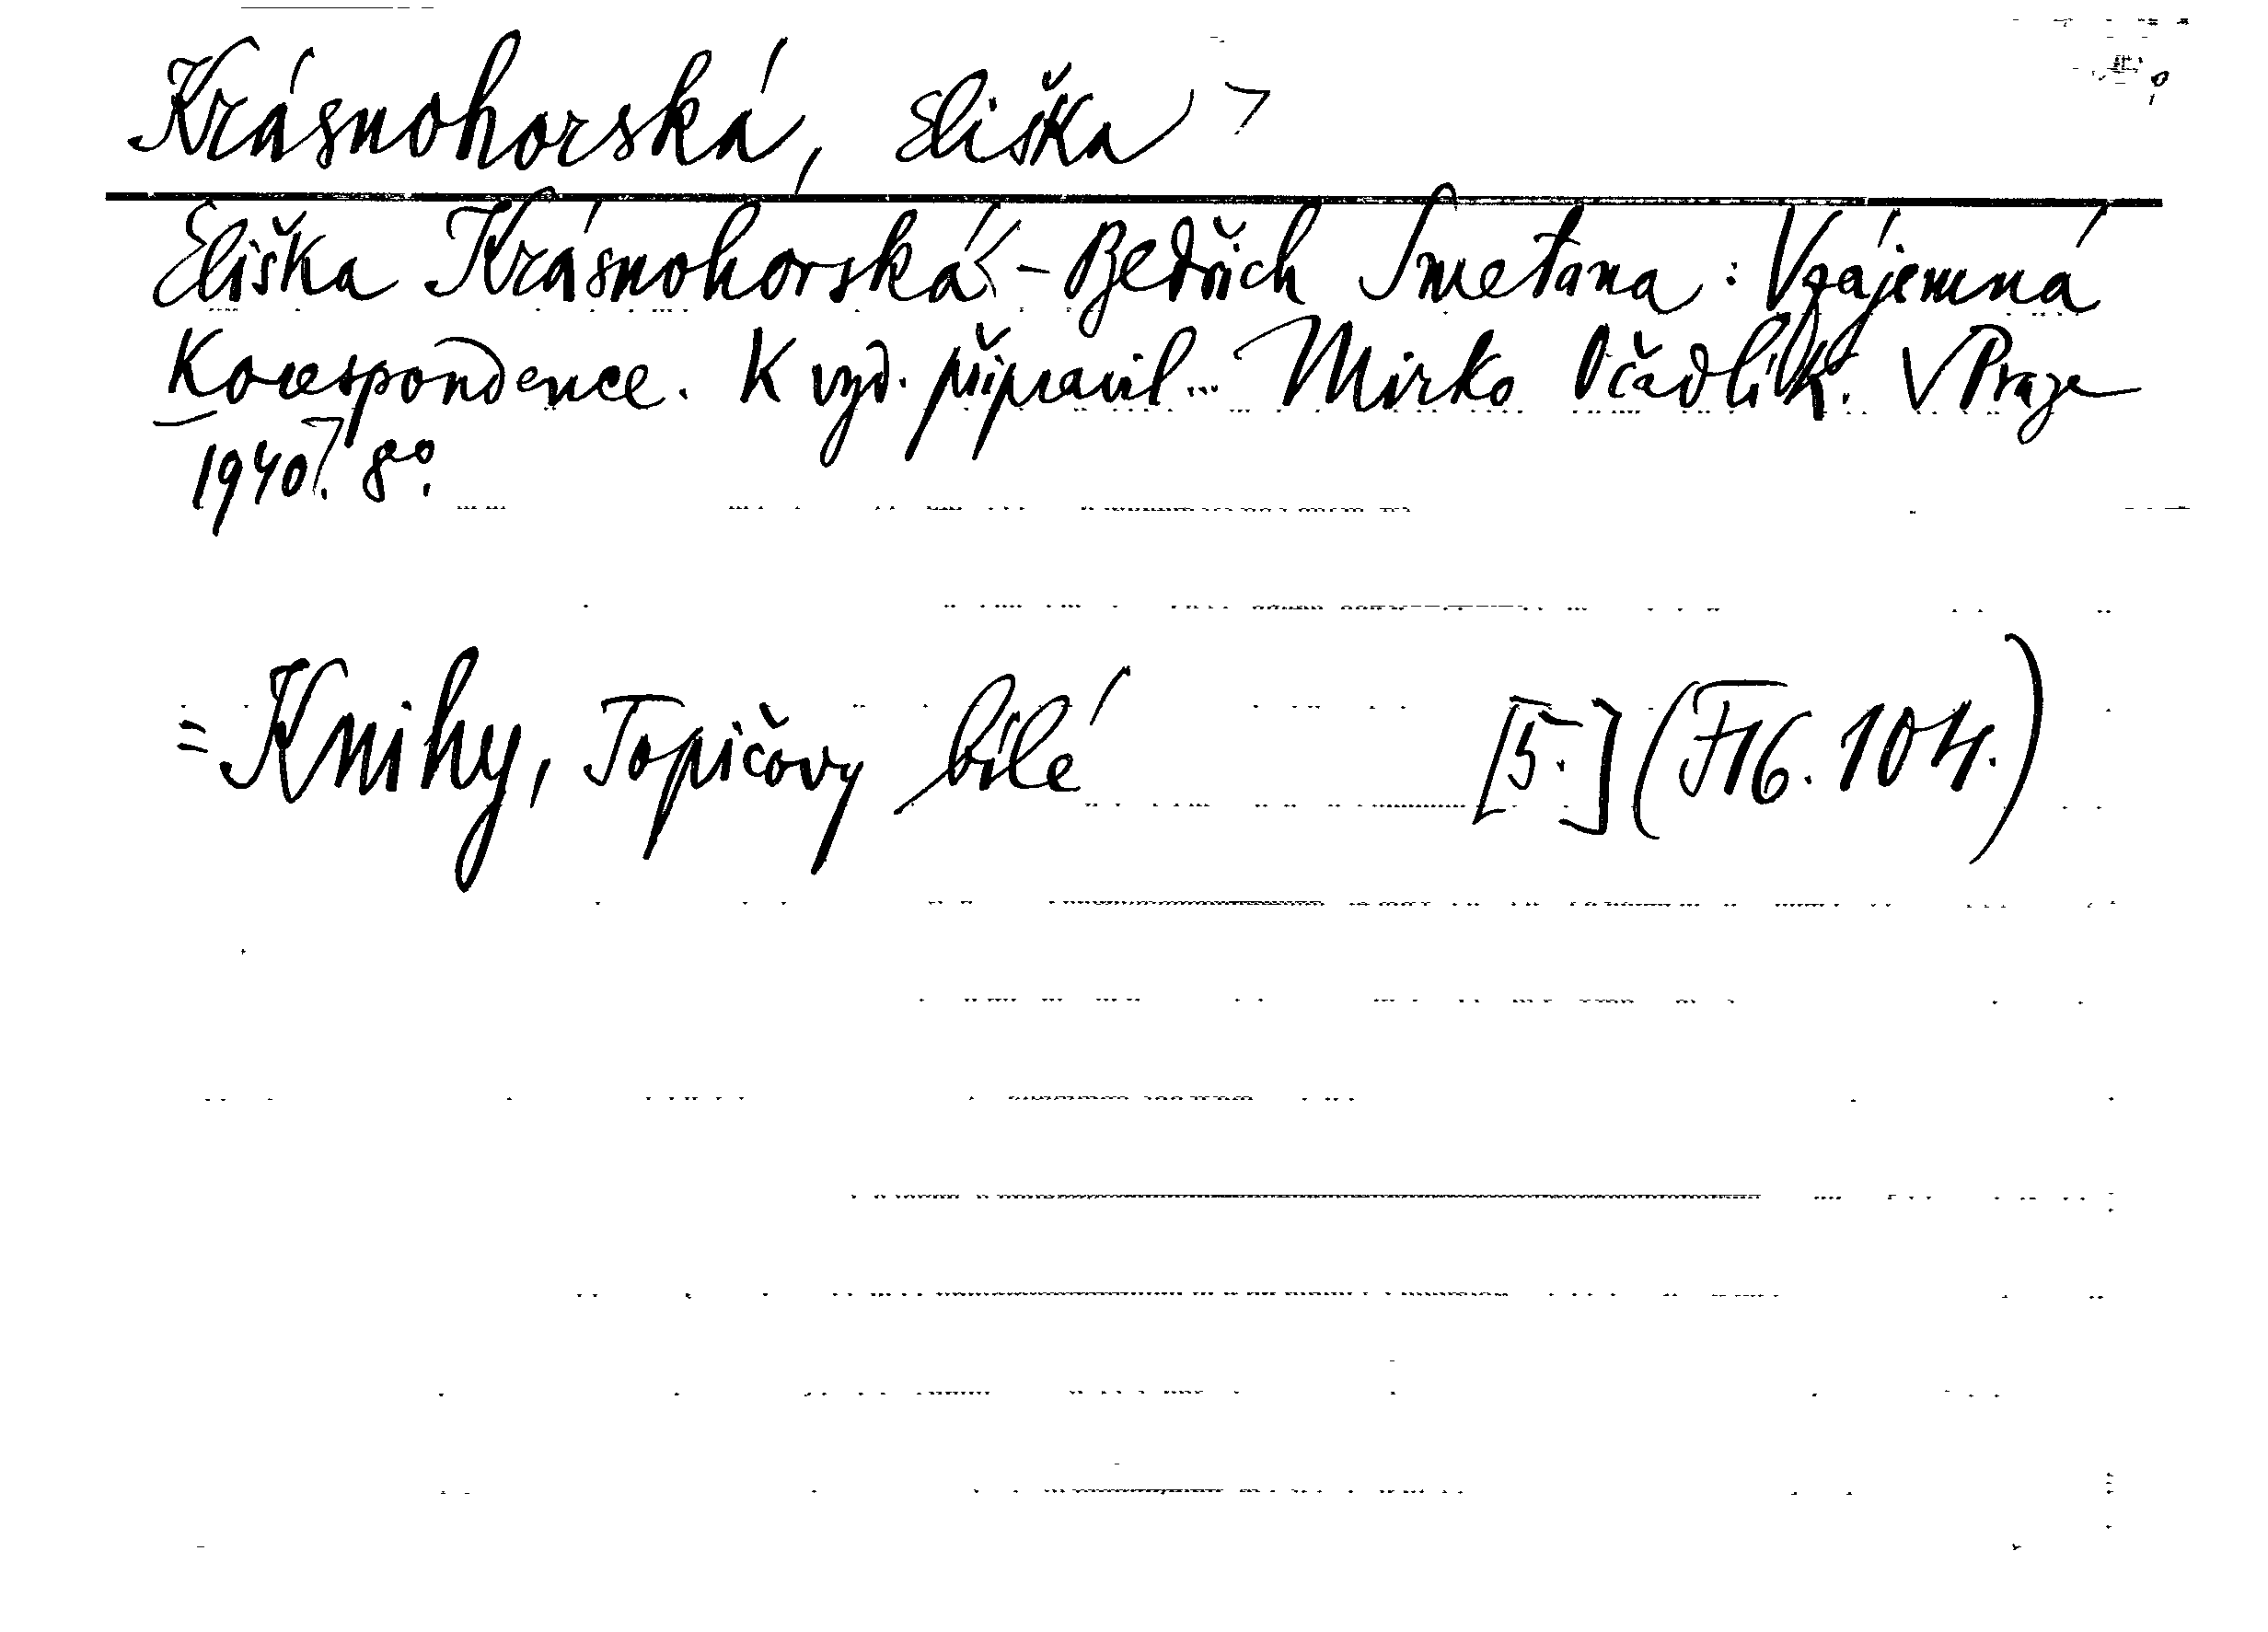 Krásnohorská, Eliška
Eliška Krásnohorská - Bedřich Smetana : Vzájemná
Korespondence. K vyd. připravil... Mirko Očadlík. V Praze
1940. 8°.
= Knihy, Topičovy bílé [5.] (F16.104.)